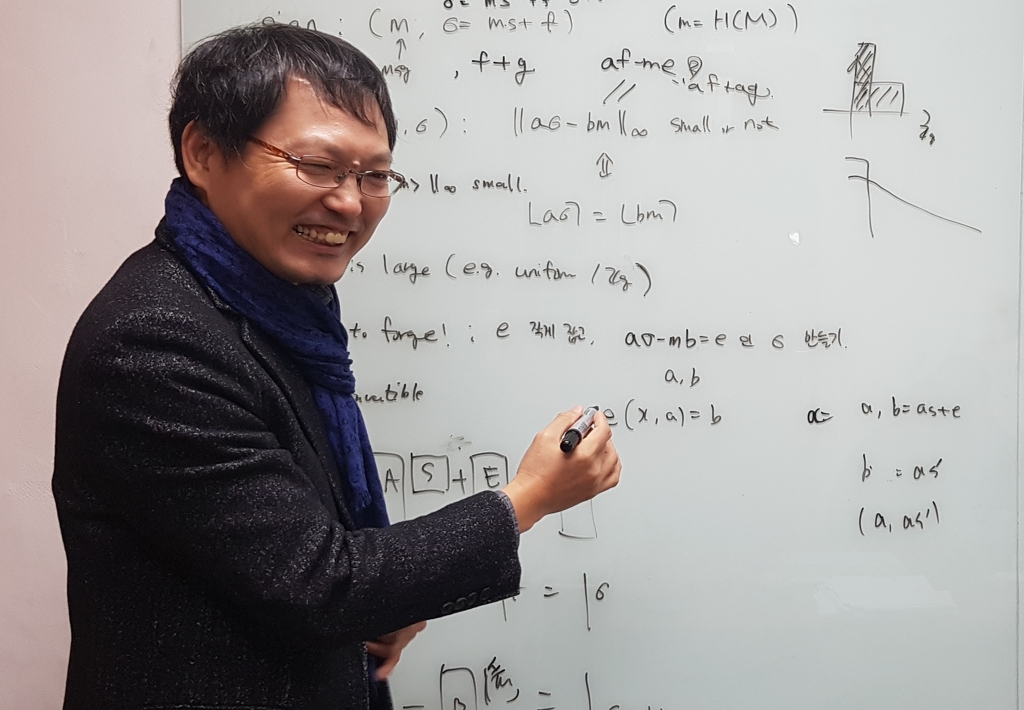 sign : (M, σ = ms + f) (m = H(M))
msg , f+g
af+ag
, σ) : ||aσ - bm||∞ small or not
⇕
||∞ small.
⌊aσ⌉ = ⌊bm⌉
is large (e.g. uniform / Zq)
to forge! ; e 작게 잡고, aσ-mb=e 인 σ 만들기.
invertible
a, b
e(x, a) = b
a= a, b=as+e
b = as'
(a, as')
A S + E
= σ
B
=